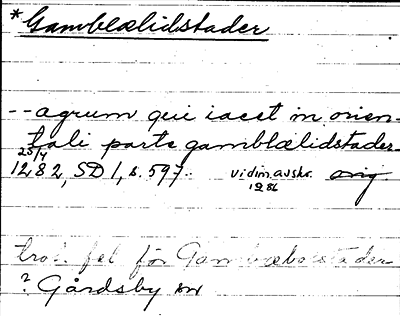 *Gamblælidstader
-- agrum qui iacet in orien-
tali parte gamblælidstader
25/4
1282, SD 1, s. 597. vidim.avskr. orig.
1286
fel för
? Gårdsby sn